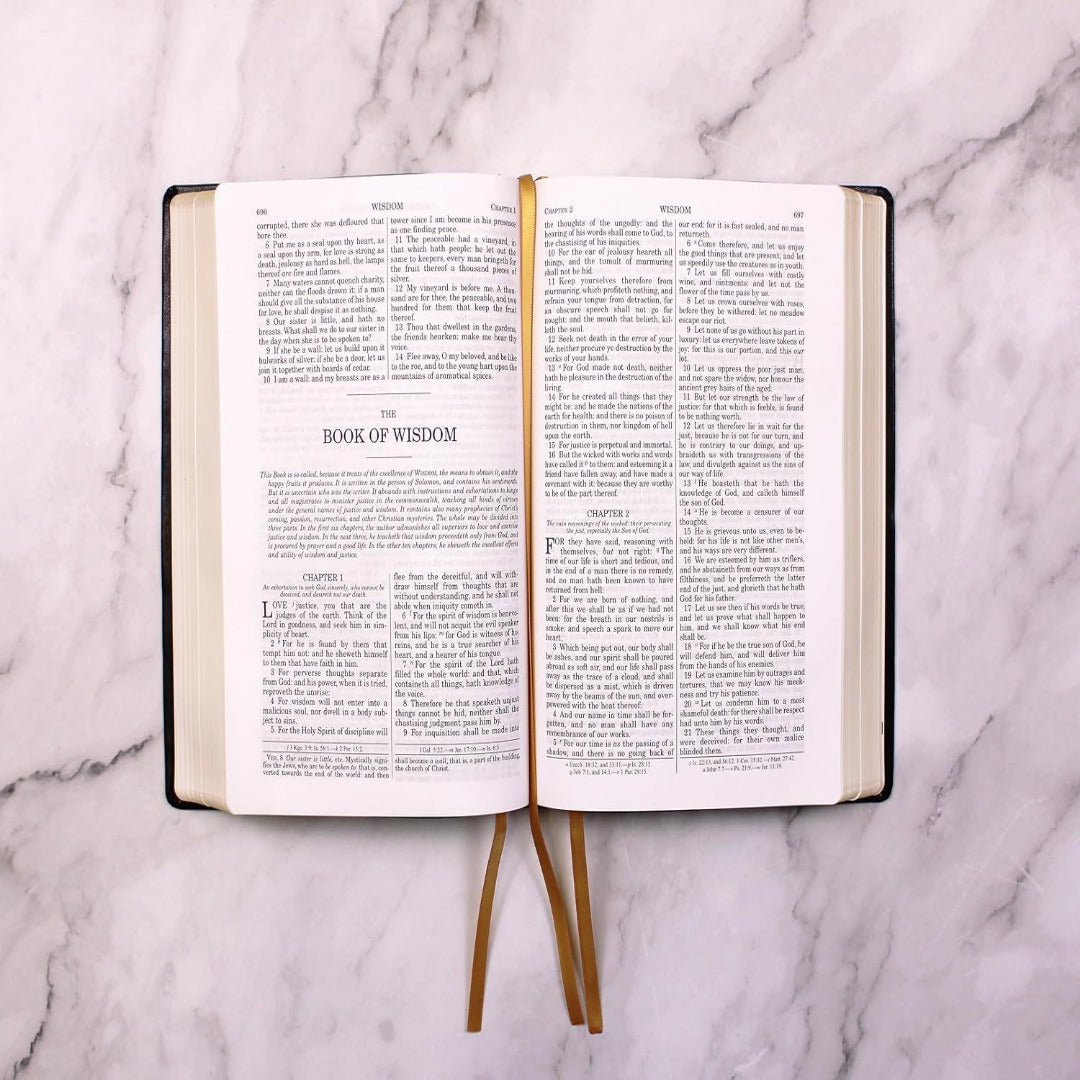 696
WISDOM
CHAPTER 1
corrupted, there she was defloured that
bore thee.
6 Put me as a seal upon thy heart, as
a seal upon thy arm, for love is strong as
death, jealousy as hard as hell, the lamps
thereof are fire and flames.
7 Many waters cannot quench charity,
neither can the floods drown it: if a man
should give all the substance of his house
for love, he shall despise it as nothing.
8 Our sister is little, and hath no
breasts. What shall we do to our sister in
the day when she is to be spoken to?
9 If she be a wall: let us build upon it
bulwarks of silver: if she be a door, let us
join it together with boards of cedar.
10 I am a wall: and my breasts are as a
tower since I am become in his presence
as one finding peace.
11 The peaceable had a vineyard, in
that which hath people: he let out the
same to keepers, every man bringeth for
the fruit thereof a thousand pieces of
silver.
12 My vineyard is before me. A thou-
sand are for thee, the peaceable, and two
hundred for them that keep the fruit
thereof.
13 Thou that dwellest in the gardens,
the friends hearken: make me hear thy
voice.
14 Flee away, O my beloved, and be like
to the roe, and to the young hart upon the
mountains of aromatical spices.
THE
BOOK OF WISDOM
This Book is so called, because it treats of the excellence of WISDOM, the means to obtain it, and the
happy fruits it produces. It is written in the person of Solomon, and contains his sentiments.
But it is uncertain who was the writer. It abounds with instructions and exhortations to kings
and all magistrates to minister justice in the commonwealth, teaching all kinds of virtues
under the general names of justice and wisdom. It contains also many prophecies of Christ's
coming, passion, resurrection, and other Christian mysteries. The whole may be divided into
three parts. In the first six chapters, the author admonishes all superiors to love and exercise
justice and wisdom. In the next three, he teacheth that wisdom proceedeth only from God, and
is procured by prayer and a good life. In the other ten chapters, he sheweth the excellent effects
and utility of wisdom and justice.
CHAPTER 1
An exhortation to seek God sincerely, who cannot be
deceived, and desireth not our death.
LOVE justice, you that are the
judges of the earth. Think of the
Lord in goodness, and seek him in sim-
plicity of heart.
2 For he is found by them that
tempt him not: and he sheweth himself
to them that have faith in him.
3 For perverse thoughts separate
from God: and his power, when it is tried,
reproveth the unwise:
4 For wisdom will not enter into a
malicious soul, nor dwell in a body sub-
ject to sins.
5 For the Holy Spirit of discipline will
flee from the deceitful, and will with-
draw himself from thoughts that are
without understanding, and he shall not
abide when iniquity cometh in.
6 For the spirit of wisdom is benevo-
lent, and will not acquit the evil speaker
from his lips: for God is witness of his
reins, and he is a true searcher of his
heart, and a hearer of his tongue.
7 For the spirit of the Lord hath
filled the whole world: and that, which
containeth all things, hath knowledge of
the voice.
8 Therefore he that speaketh unjust
things cannot be hid, neither shall the
chastising judgment pass him by.
9 For inquisition shall be made into
VER. 8 Our sister is little, etc. Mystically signi-
fies the Jews, who are to be spoken to: that is, con-
verted towards the end of the world: and then
shall become a wall, that is, a part of the building,
the church of Christ.
CHAPTER 2
WISDOM
697
the thoughts of the ungodly: and the
hearing of his words shall come to God, to
the chastising of his iniquities.
10 For the ear of jealousy heareth all
things, and the tumult of murmuring
shall not be hid.
11 Keep yourselves therefore from
murmuring, which profiteth nothing, and
refrain your tongue from detraction, for
an obscure speech shall not go for
naught: and the mouth that belieth, kil-
leth the soul.
12 Seek not death in the error of your
life, neither procure ye destruction by the
works of your hands.
13 For God made not death, neither
hath he pleasure in the destruction of the
living.
14 For he created all things that they
might be: and he made the nations of the
earth for health: and there is no poison of
destruction in them, nor kingdom of hell
upon the earth.
15 For justice is perpetual and immortal.
16 But the wicked with works and words
have called it to them: and esteeming it a
friend have fallen away, and have made a
covenant with it: because they are worthy
to be of the part thereof.
CHAPTER 2
The vain reasonings of the wicked: their persecuting
the just, especially the Son of God.
FOR they have said, reasoning with
themselves, but not right: The
time of our life is short and tedious, and
in the end of a man there is no remedy,
and no man hath been known to have
returned from hell:
2 For we are born of nothing, and
after this we shall be as if we had not
been: for the breath in our nostrils is
smoke: and speech a spark to move our
heart.
3 Which being put out, our body shall
be ashes, and our spirit shall be poured
abroad as soft air, and our life shall pass
away as the trace of a cloud, and shall
be dispersed as a mist, which is driven
away by the beams of the sun, and over-
powered with the heat thereof:
4 And our name in time shall be for-
gotten, and no man shall have any
remembrance of our works.
5 For our time is as the passing of a
shadow, and there is no going back of
our end: for it is fast sealed, and no man
returneth.
6 Come therefore, and let us enjoy
the good things that are present, and let
us speedily use the creatures as in youth.
7 Let us fill ourselves with costly
wine, and ointments: and let not the
flower of the time pass by us.
8 Let us crown ourselves with roses,
before they be withered: let no meadow
escape our riot.
9 Let none of us go without his part in
luxury: let us everywhere leave tokens of
joy: for this is our portion, and this our
lot.
10 Let us oppress the poor just man,
and not spare the widow, nor honour the
ancient grey hairs of the aged.
11 But let our strength be the law of
justice: for that which is feeble, is found
to be nothing worth.
12 Let us therefore lie in wait for the
just, because he is not for our turn, and
he is contrary to our doings, and up-
braideth us with transgressions of the
law, and divulgeth against us the sins of
our way of life.
13 He boasteth that he hath the
knowledge of God, and calleth himself
the son of God.
14 He is become a censurer of our
thoughts.
15 He is grievous unto us, even to be-
hold: for his life is not like other men's,
and his ways are very different.
16 We are esteemed by him as triflers,
and he abstaineth from our ways as from
filthiness, and he preferreth the latter
end of the just, and glorieth that he hath
God for his father.
17 Let us see then if his words be true,
and let us prove what shall happen to
him, and we shall know what his end
shall be.
18 For if he be the true son of God, he
will defend him, and will deliver him
from the hands of his enemies.
19 Let us examine him by outrages and
tortures, that we may know his meek-
ness and try his patience.
20 Let us condemn him to a most
shameful death: for there shall be respect
had unto him by his words.
21 These things they thought, and
were deceived: for their own malice
blinded them.